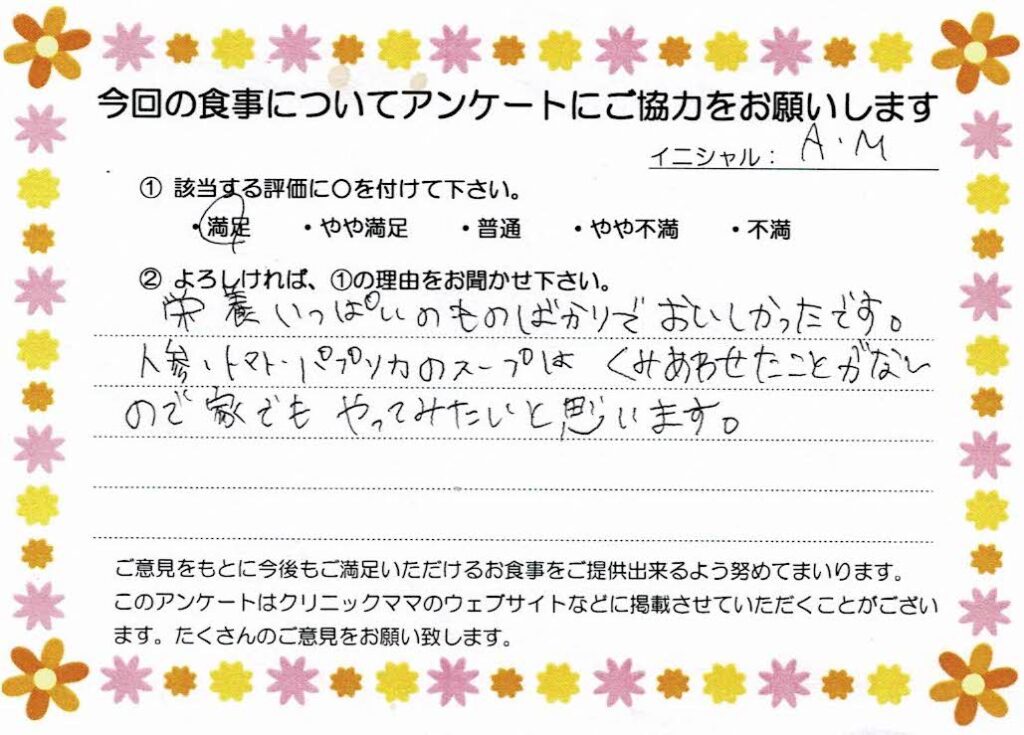 今回の食事についてアンケートにご協力をお願いします
イニシャル： A.M
① 該当する評価に〇を付けて下さい。
・満足 ・やや満足 ・普通 ・やや不満 ・不満
② よろしければ、①の理由をお聞かせ下さい。
栄養いっぱいのものばかりでおいしかったです。
人参・トマト・パプリカのスープは くみあわせたことがない
ので家でも やってみたいと思います。
ご意見をもとに今後もご満足いただけるお食事をご提供出来るよう努めてまいります。
このアンケートはクリニックママのウェブサイトなどに掲載させていただくことがござい
ます。たくさんのご意見をお願い致します。